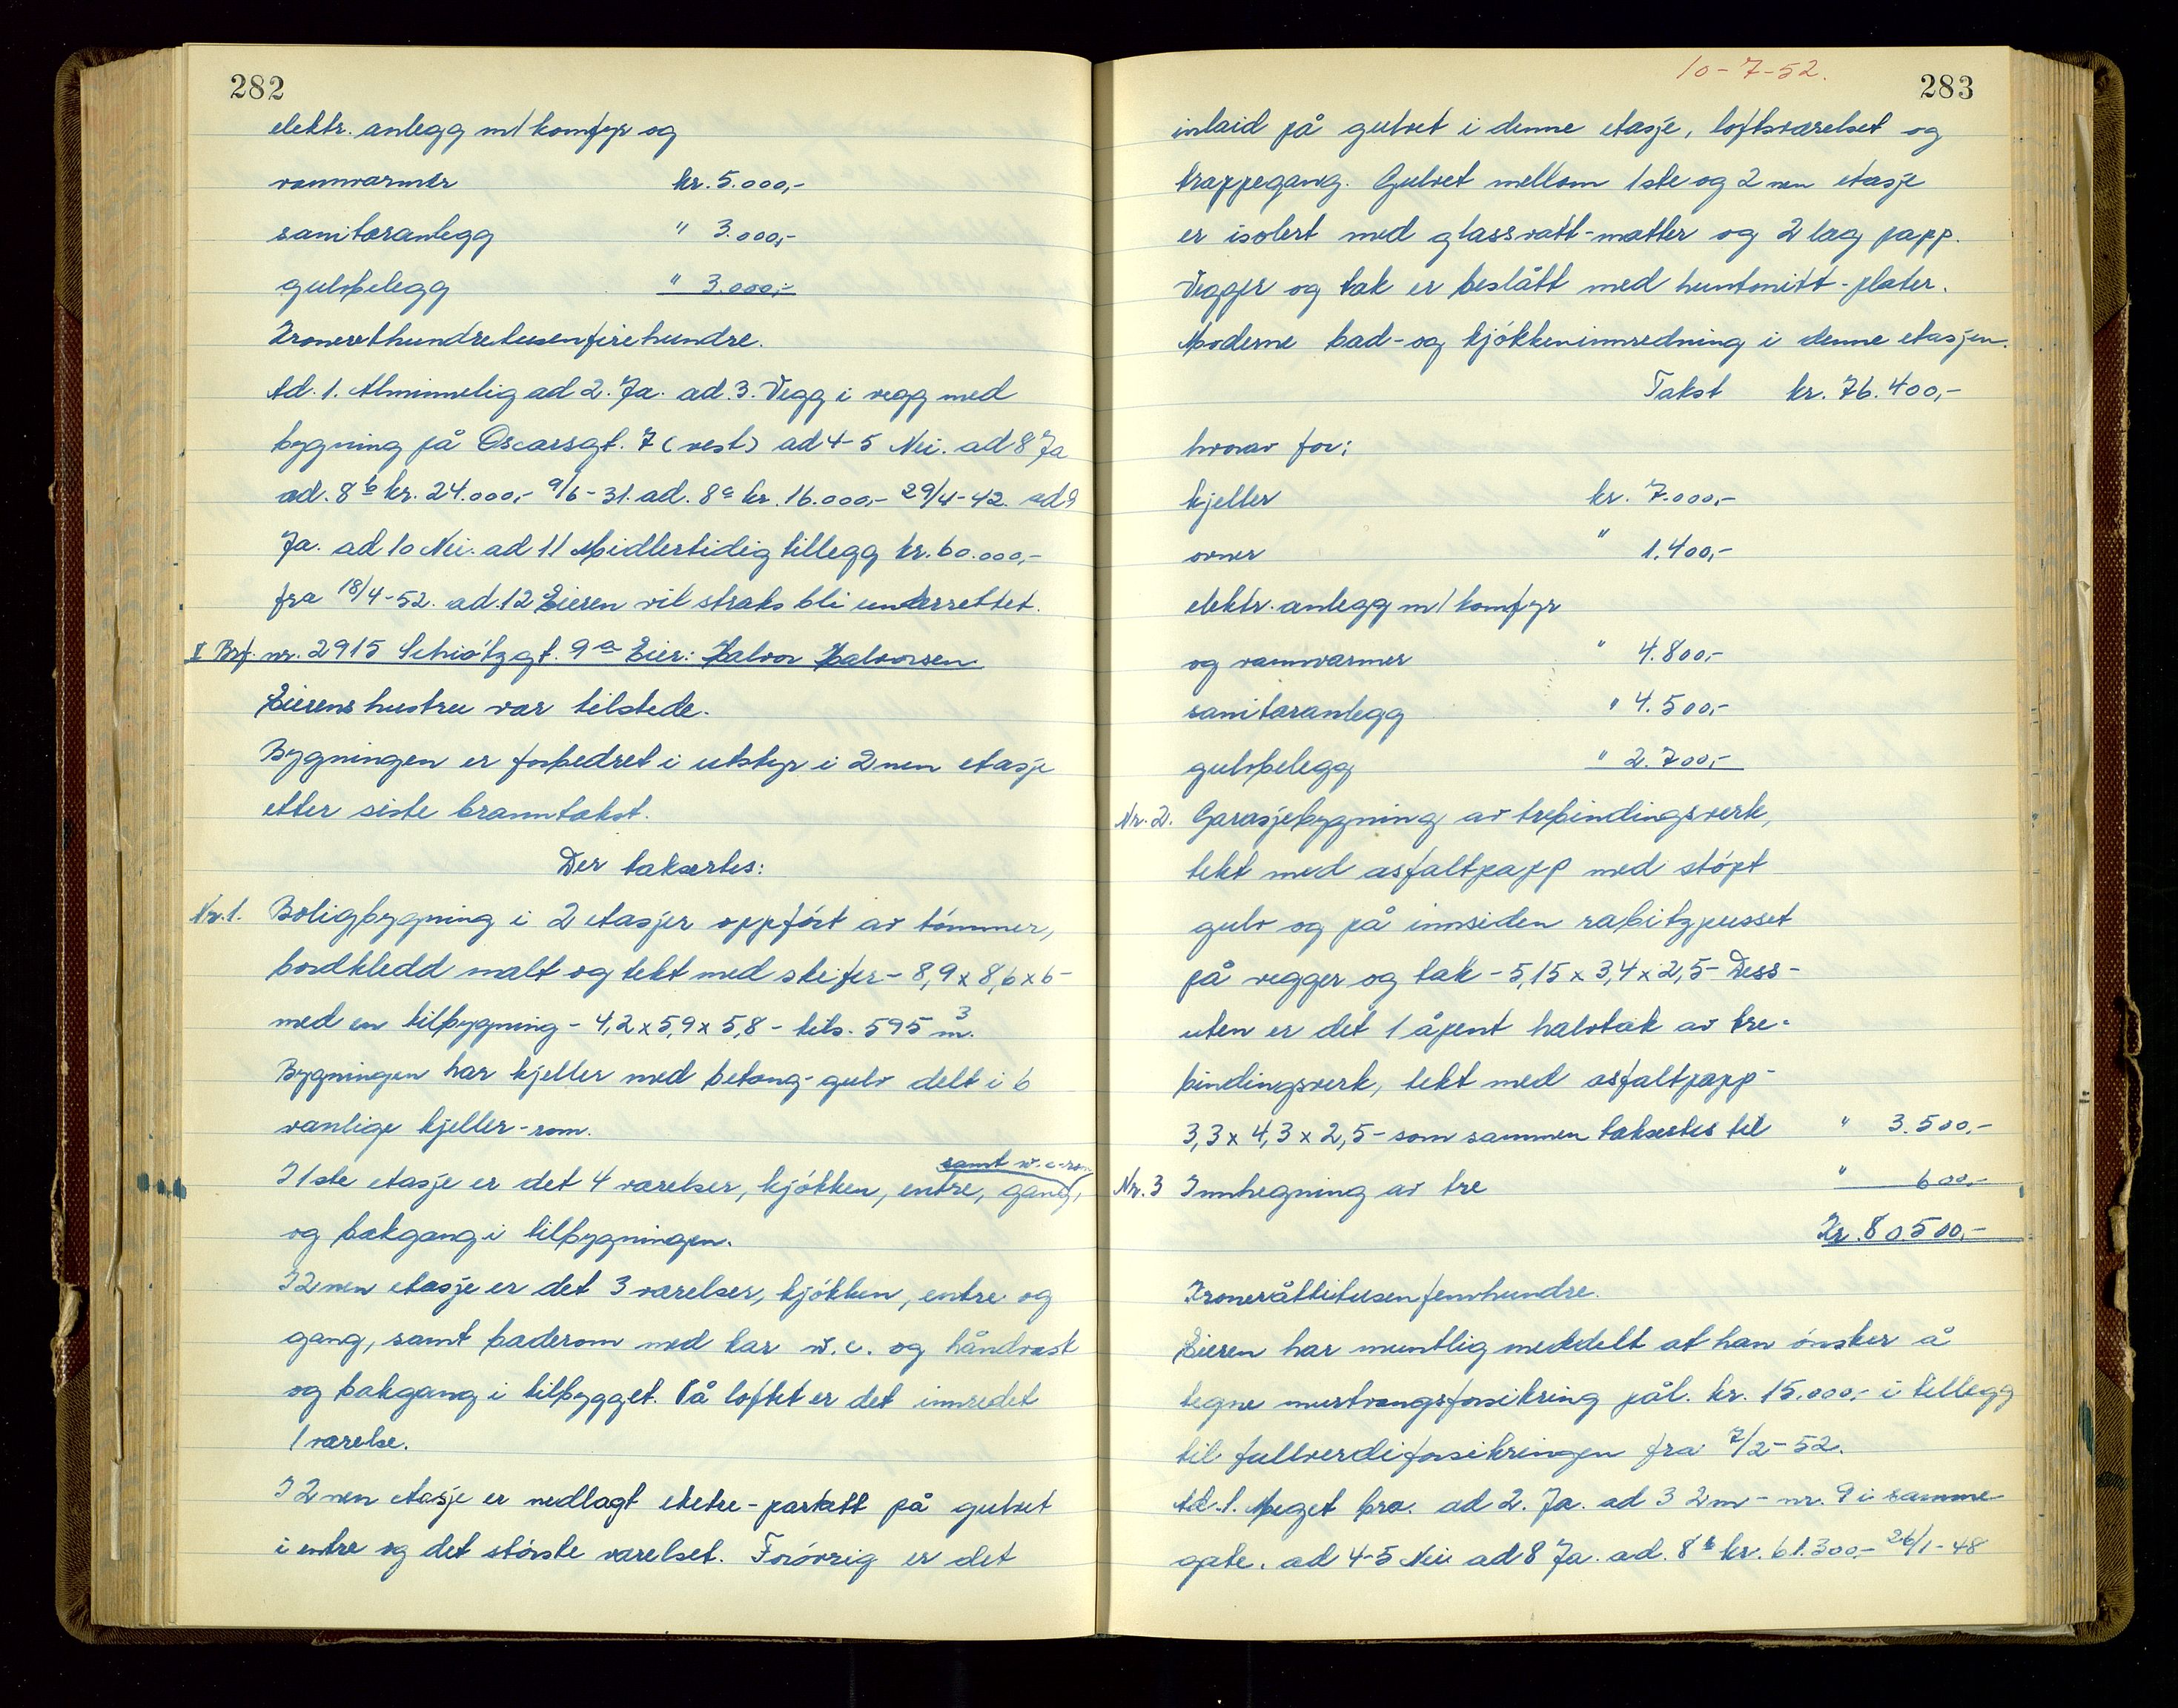 282
elektr. anlegg m/ komfyr og
vannvarmer kr. 5.000,-
sanitæranlegg " 3.000,-
gulvbelegg " 3.000,-
Kronerethundretusenfirehundre.
Ad. 1. Alminnelig ad 2. Ja. ad. 3. Vegg i vegg med
bygning på Oscarsgt. 7 (vest) ad 4-5 Nei. ad 8 Ja
ad. 8 b kr. 24.000,- 9/6-31. ad. 8 c kr. 16.000,- 29/4-42. ad 9
Ja. ad 10 Nei. ad 11 Midlertidig tillegg kr. 60.000,-
fra 18/4-52. ad. 12 Eieren vil straks bli underrettet.
V Brf. nr. 2915 Schiøtzgt. 9 a Eier: Halvor Halvorsen
Eierens hustru var tilstede.
Bygningen er forbedret i utstyr i 2nen etasje
etter siste branntakst.
Der taksertes:
Nr. 1. Boligbygning i 2 etasjer oppført av tømmer,
bordkledd malt og tekt med skifer - 8,9 x 8,6 x 6 -
med en tilbygning - 4,2 x 5,9 x 5,8 - tils. 595 m³.
Bygningen har kjeller med betong-gulv delt i 6
vanlige kjeller-rom.
samt w.c-rom
I 1ste etasje er det 4 værelser, kjøkken, entre, gang,
og bakgang i tilbygningen.
I 2nen etasje er det 3 værelser, kjøkken, entre og
gang, samt baderom med kar w.c. og håndvask
og bakgang i tilbygget. På loftet er det innredet
1 værelse.
I 2nen etasje er nedlagt eketre-parkett på gulvet
i entre og det største værelset. Forøvrig er det
10-7-52.
283
inlaid på gulvet i denne etasje, loftsværelset og
trappegang. Gulvet mellom 1ste og 2nen etasje
er isolert med glassvatt-matter og 2 lag papp.
Vegger og tak er beslått med huntonitt-plater.
Moderne bad- og kjøkkeninnredning i denne etasjen.
Takst kr. 76.400,-
hvorav for:
kjeller kr. 7.000,-
ovner " 1.400,-
elektr. anlegg m/ komfyr
og vannvarmer " 4.800,-
sanitæranlegg " 4.500,-
gulvbelegg " 2.700,-
Nr. 2. Garasjebygning av trebindingsverk,
tekt med asfaltpapp med støpt
gulv og på innsiden rabitzpusset
på vegger og tak - 5,15 x 3,4 x 2,5 - Dess-
uten er det 1 åpent halvtak av tre-
bindingsverk, tekt med asfaltpapp -
3,3 x 4,3 x 2,5 - som sammen takseres til " 3.500,-
Nr. 3 Innhegning av tre " 600,-
Kr. 80.500,-
Kroneråttitusenfemhundre.
Eieren har muntlig meddelt at han ønsker å
tegne murtvangsforsikring pål. kr. 15.000,- i tillegg
til fullverdiforsikringen fra 7/2-52.
Ad. 1. Meget bra. ad 2. Ja. ad 3 2m - nr. 9 i samme
gate. ad 4-5 Nei ad 8 Ja. ad. 8 b kr. 61.300,- 26/1-48